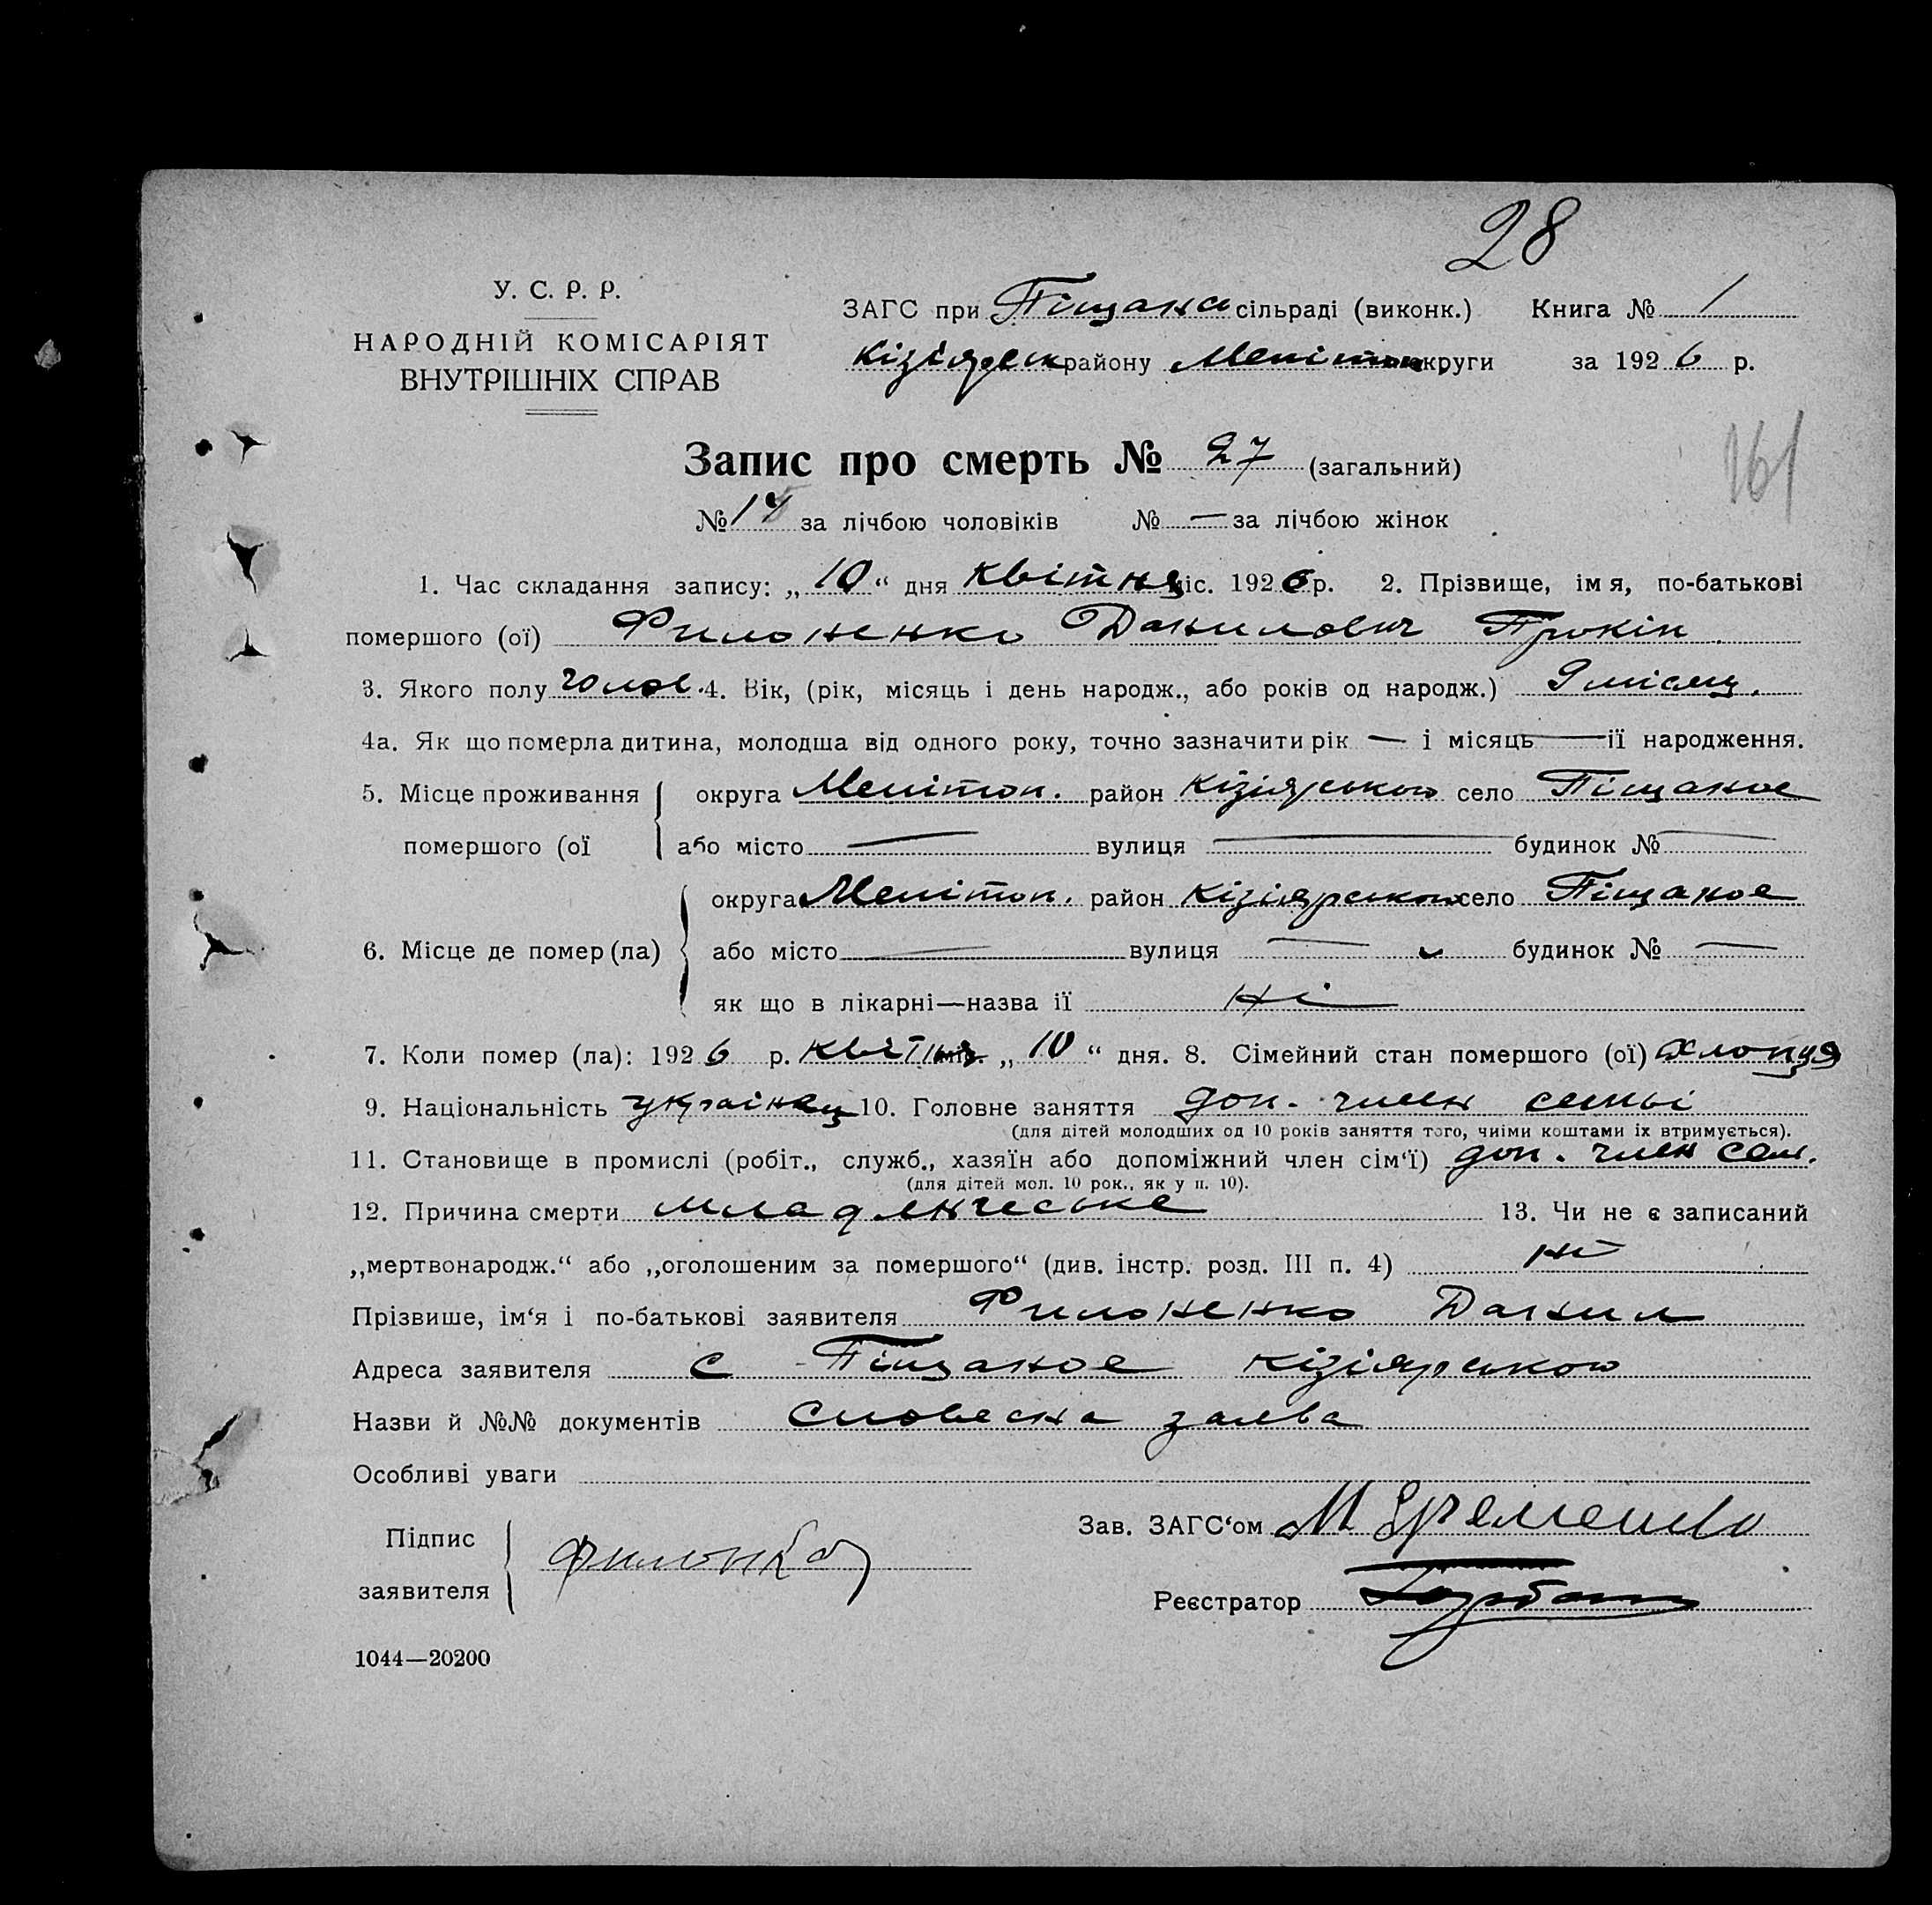 28
У. С. Р. Р.
НАРОДНІЙ КОМІСАРІЯТ
ВНУТРІШНІХ СПРАВ
ЗАГС при Піщана сільраді (виконк.) Книга № 1
Кізіярск району Меліт округи за 1926 р.
Запис про смерть № 27 (загальний)
161
№ 15 за лічбою чоловіків № — за лічбою жінок
1. Час складання запису: „10“ дня Квітня міс. 1926 р. 2. Прізвище, імя, по-батькові
помершого (ої) Филоненко Данилович Прокіп
3. Якого полу чолов. 4. Вік, (рік, місяць і день народж., або років од народж.) 9 місяц.
4а. Як що померла дитина, молодша від одного року, точно зазначити рік — і місяць — ії народження.
5. Місце проживання
помершого (ої
округа Мелітоп. район Кізіярською село Піщаное
або місто — вулиця — будинок № —
6. Місце де помер (ла)
округа Мелітоп. район Кізіярською село Піщаное
або місто — вулиця — будинок № —
як що в лікарні—назва ії Ні
7. Коли помер (ла): 1926 р. Квітня міс. „10“ дня. 8. Сімейний стан помершого (ої) хлопця
9. Національність українец 10. Головне заняття доп. член семьі
(для дітей молодших од 10 років заняття того, чиїми коштами іх втримується).
11. Становище в промислі (робіт., служб., хазяїн або допоміжний член сім‘ї) доп. член сем.
(для дітей мол. 10 рок., як у п. 10).
12. Причина смерти младенческе 13. Чи не є записаний
„мертвонародж.“ або „оголошеним за помершого“ (див. інстр. розд. III п. 4) ні
Прізвише, ім‘я і по-батькові заявителя Филоненко Данил
Адреса заявителя с Піщаное Кізіярською
Назви й №№ документів Словесна заява
Особливі уваги
Підпис
заявителя
Зав. ЗАГС‘ом М Яременко
Реєстратор
1044—20200